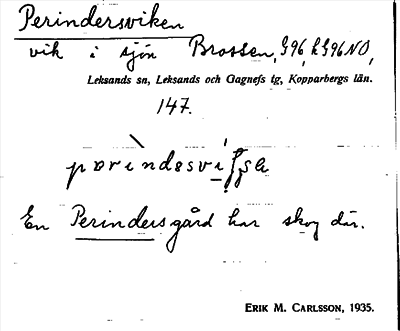 Perindersviken
vik i sjön Brossen, G96, k G96NO,
Leksands sn, Leksands och Gagnefs tg, Kopparbergs län.
147.
En Perindersgård har skog där.
ERIK M. CARLSSON, 1935.